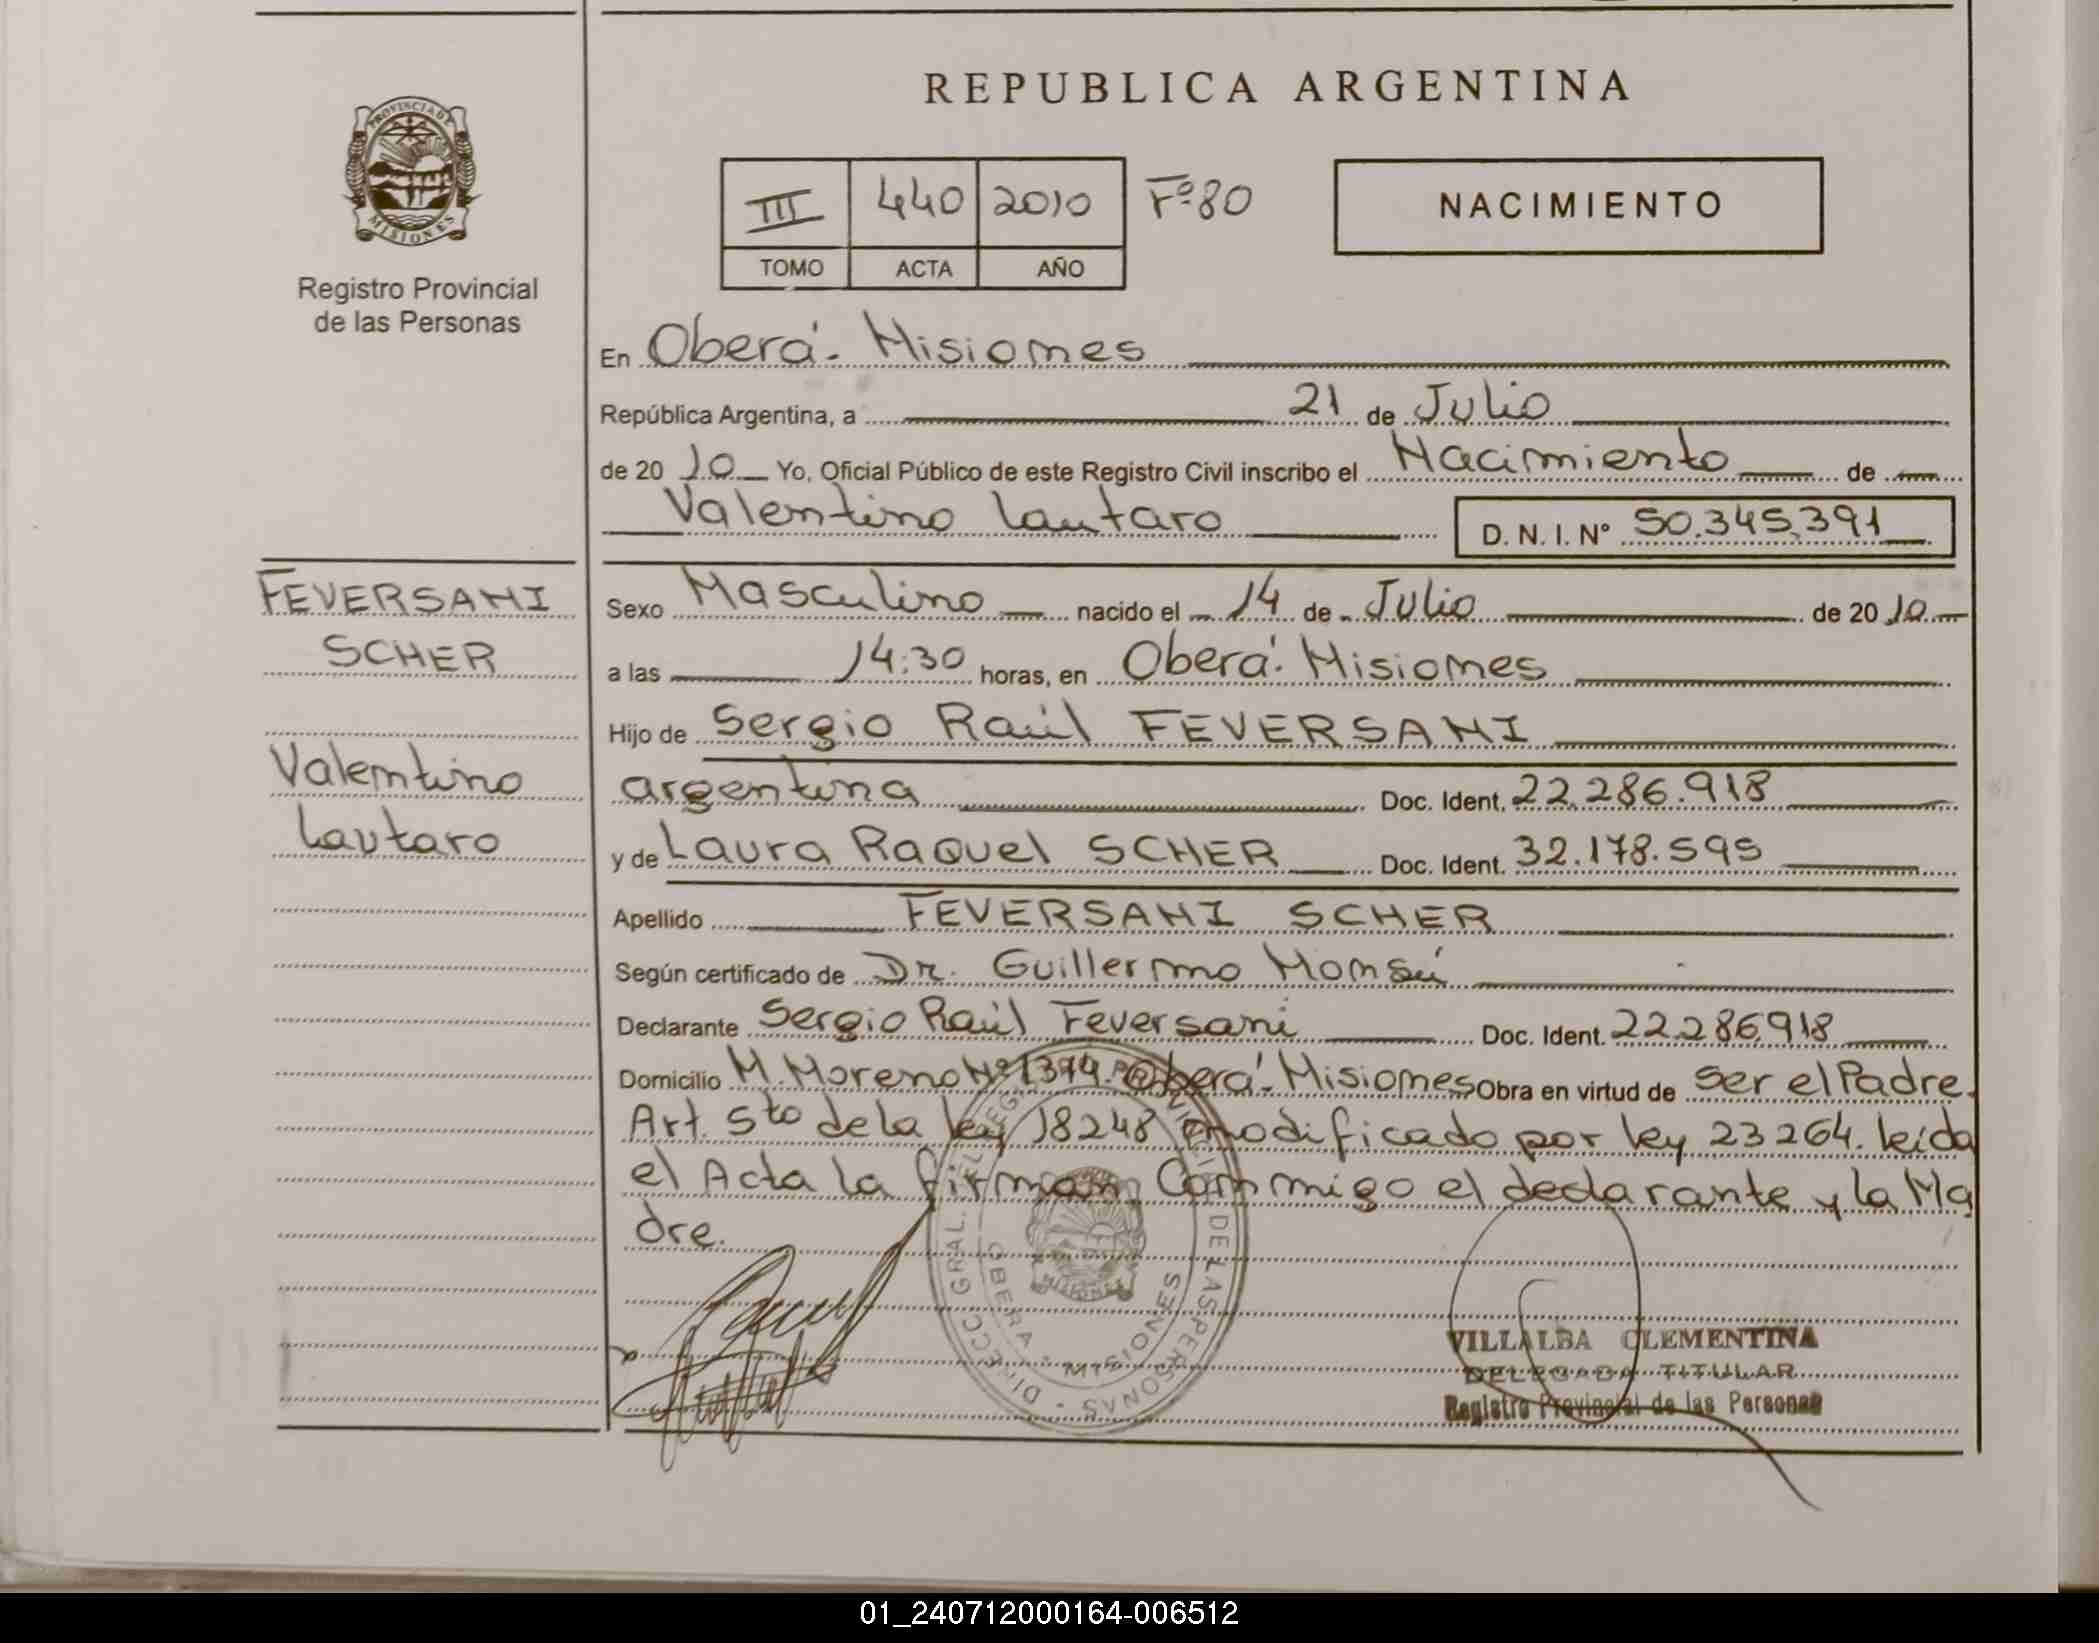 REPUBLICA ARGENTINA
PROVINCIA DE
MISIONES
Registro Provincial
de las Personas
III 440 2010 Fº 80
TOMO ACTA AÑO
NACIMIENTO
En Oberá - Misiones
República Argentina, a 21 de Julio
de 2010 Yo, Oficial Público de este Registro Civil inscribo el Nacimiento de
Valentino Lautaro D. N. I. Nº 50.345.391
FEVERSANI
SCHER
Valentino
Lautaro
Sexo Masculino nacido el 14 de Julio de 2010
a las 14:30 horas, en Oberá - Misiones
Hijo de Sergio Raúl FEVERSANI
argentina Doc. Ident. 22.286.918
y de Laura Raquel SCHER Doc. Ident. 32.178.595
Apellido FEVERSANI SCHER
Según certificado de Dr. Guillermo
Declarante Sergio Raúl Feversani Doc. Ident. 22.286.918
Domicilio M. Moreno Nº 1374. Oberá - Misiones Obra en virtud de Ser el Padre.
Art. 5to de la ley 18248 modificado por ley 23264. leida
el Acta la firman Conmigo el declarante y la Ma
dre.
DIRECC. GRAL. DEL REG. PROVINCIAL DE LAS PERSONAS
OBERA - MISIONES
VILLALBA CLEMENTINA
DELEGADA TITULAR
Registro Provincial de las Personas
01_240712000164-006512